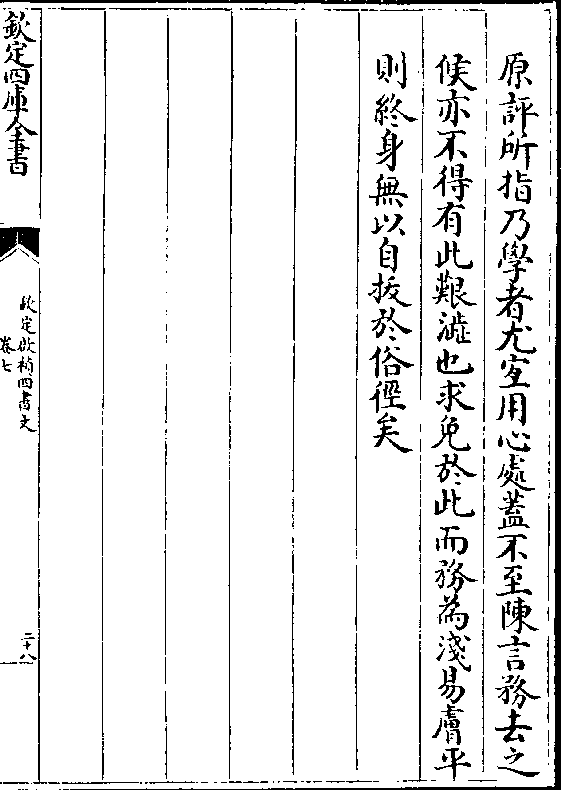 原評所指乃學者尤宜用心處蓋不至陳言務去之
候亦不得有此艱澁也求免於此而務為淺易膚平
則終身無以自拔於俗徑矣
欽定四庫全書
欽定啟禎四書文
卷七
二十八